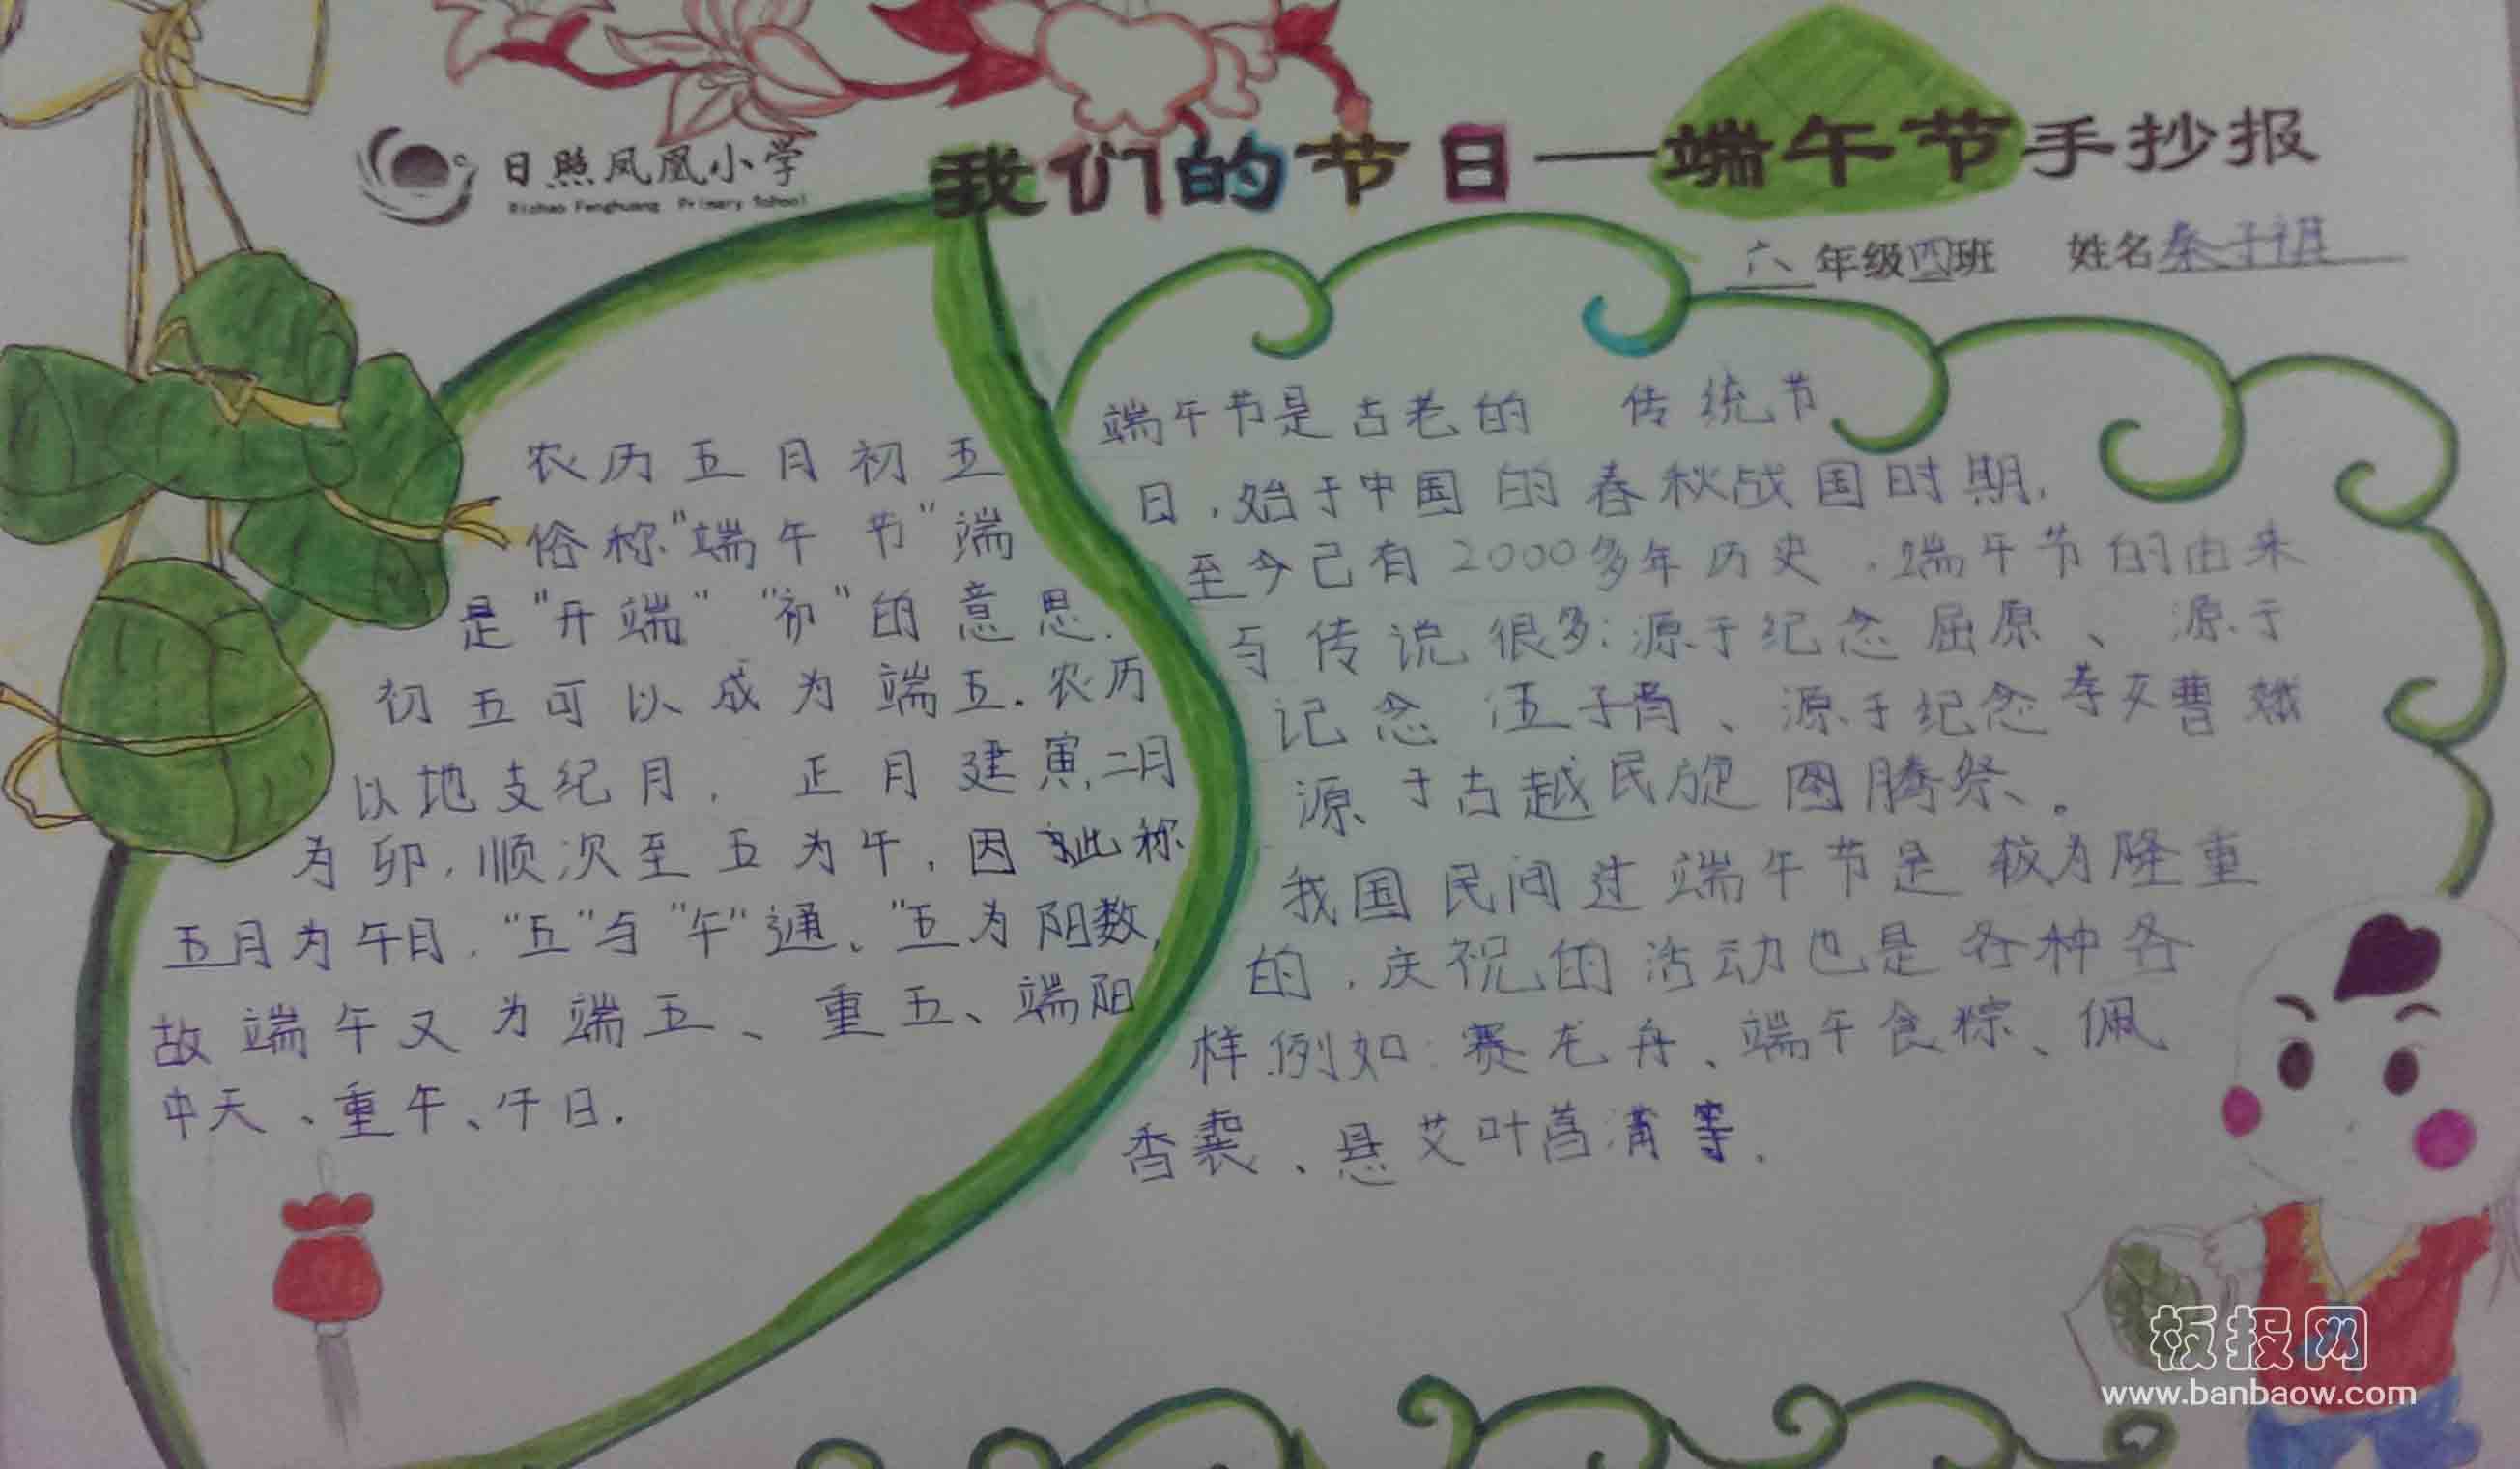 日照凤凰小学
Rizhao Fenghuang Primary School
我们的节日—端午节手抄报
六年级四班 姓名秦子祺
农历五月初五
俗称"端午节"端
是"开端""初"的意思.
初五可以成为端五.农历
以地支纪月,正月建寅,二月
为卯,顺次至五为午,因此称
五月为午月,"五"与"午"通、"五为阳数,
故端午又为端五、重五、端阳
中天、重午、午日.
端午节是古老的 传统节
日,始于中国的春秋战国时期,
至今己有2000多年历史,端午节的由来
与传说很多:源于纪念屈原、源于
记念伍子胥、源于纪念孝女曹娥
源于古越民族图腾祭、。
我国民间过端午节是较为隆重
的,庆祝的活动也是各种各
样.例如:赛龙舟、端午食粽、佩
香囊、悬艾叶菖蒲等.
板报网
www.banbaow.com